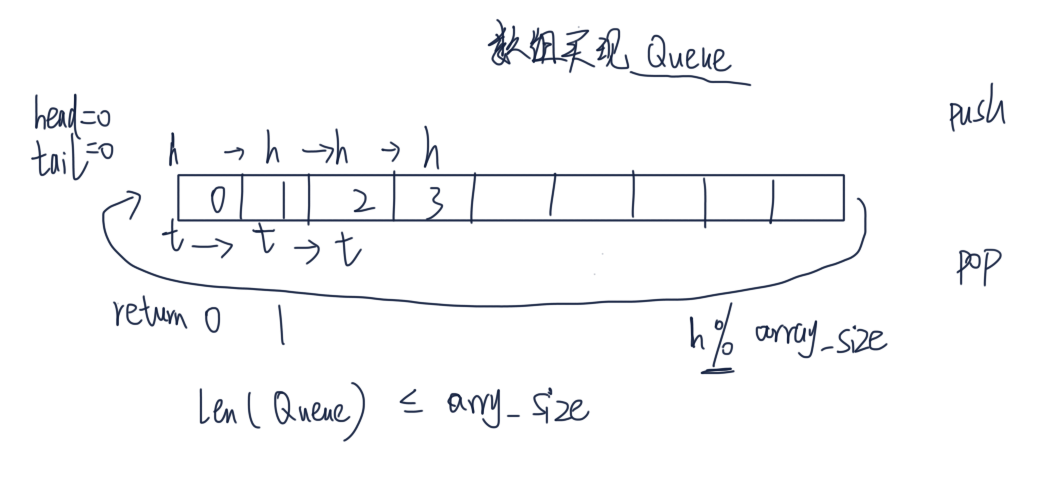 数组实现 Queue
head=0
tail=0
push
h → h → h → h
0 1 2 3
t → t → t
pop
return 0 1
h % array_size
len(Queue) ≤ arry_size